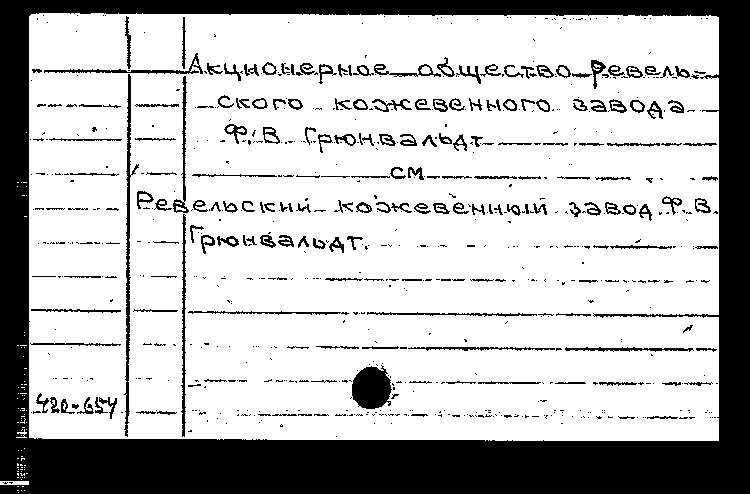 Акционерное общество Ревель-
ского кожевенного завода
Ф. В. Грюнвальдт
см
Ревельский кожевенный завод Ф. В.
Грюнвальдт.
420-654